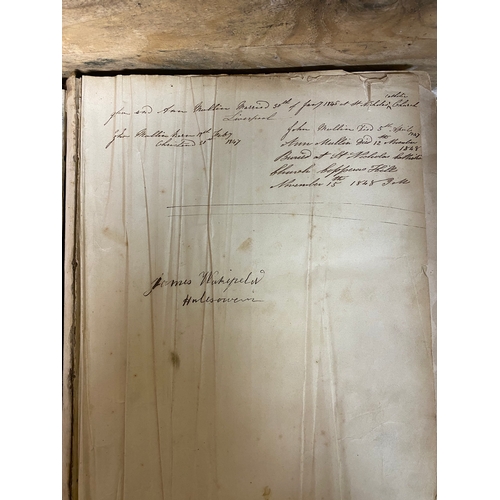 and Ann Mullin Married 30th of Jany 1845 at St Nicholas Catholic Church
Liverpool
John Mullin Born 1st Feby
Christened 21st 1847
John Mullin Died 5th April 1847
Ann Mullin Died 12th November
1848
Buried at St Nicholas Catholic
Church Copperas Hill
November 15th 1848
James Wakefield
Halesowen